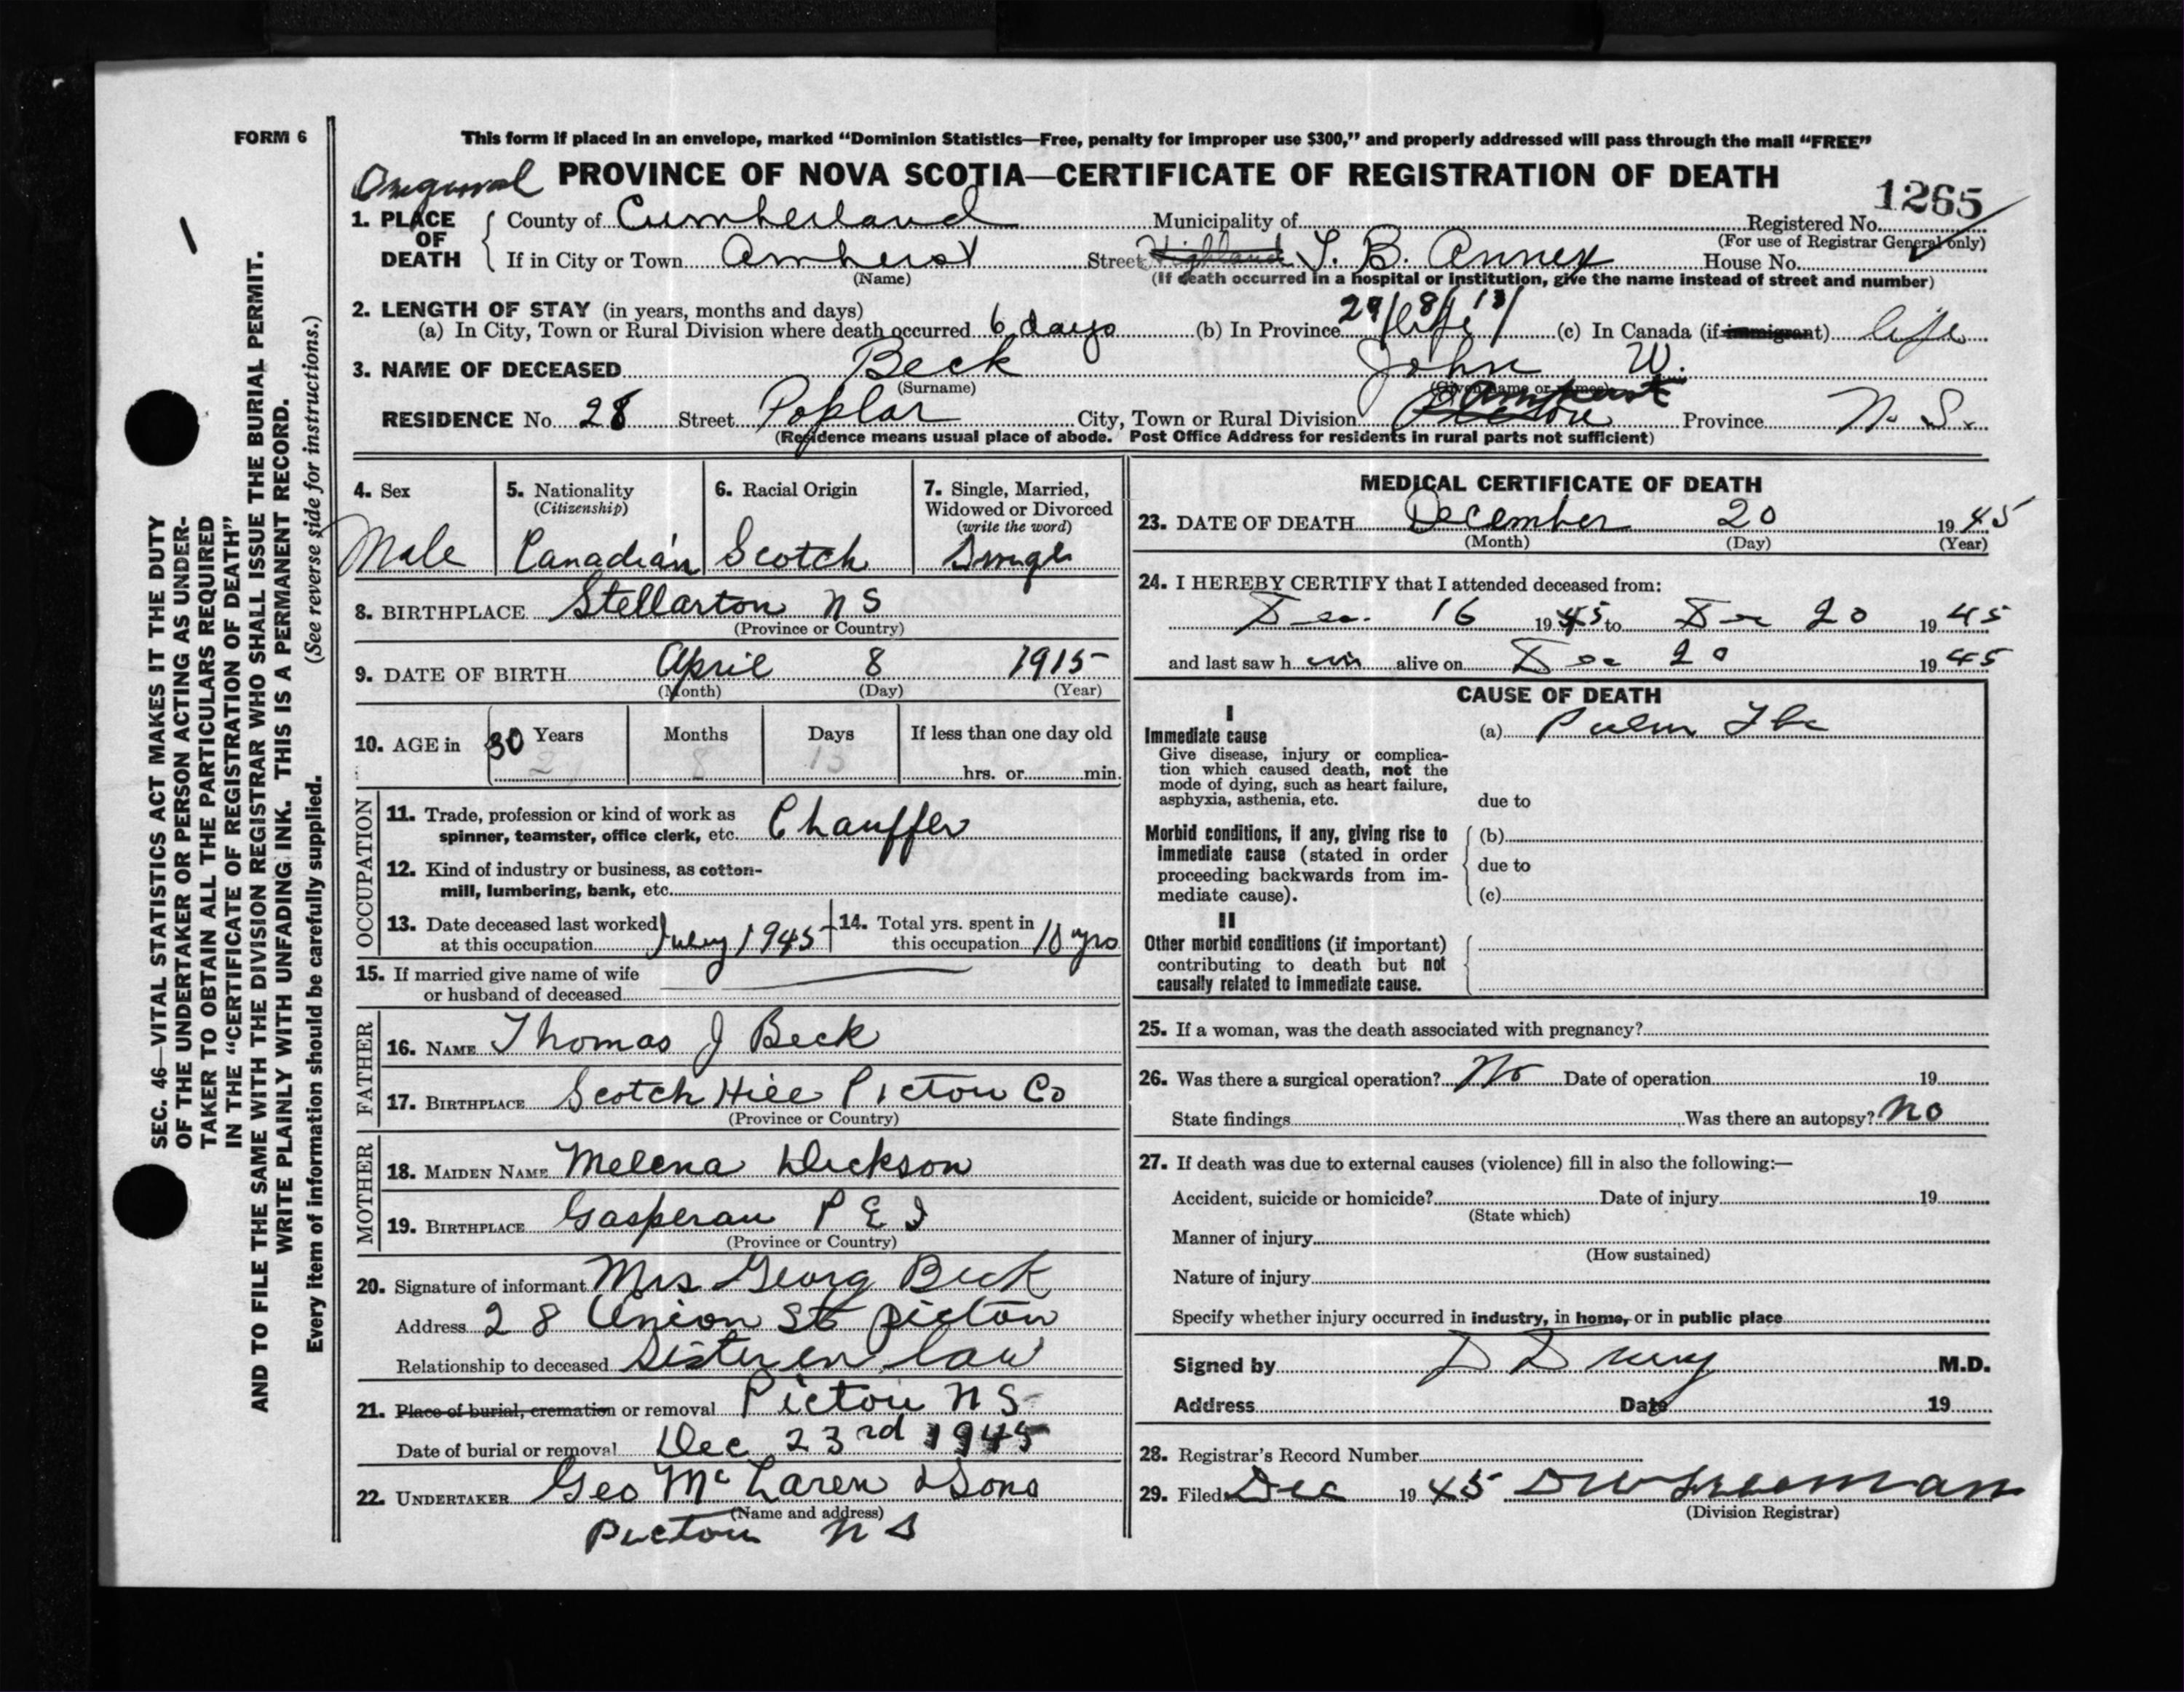 FORM 6
This form if placed in an envelope, marked “Dominion Statistics—Free, penalty for improper use $300,” and properly addressed will pass through the mail “FREE”
Original PROVINCE OF NOVA SCOTIA—CERTIFICATE OF REGISTRATION OF DEATH
1265
1. PLACE OF DEATH { County of Cumberland Municipality of Registered No.
(For use of Registrar General only)
If in City or Town Amherst Street Highland T. B. Annex House No.
(Name) (If death occurred in a hospital or institution, give the name instead of street and number)
2. LENGTH OF STAY (in years, months and days) 29/8/13/
(a) In City, Town or Rural Division where death occurred 6 days (b) In Province life (c) In Canada (if immigrant) life
3. NAME OF DECEASED Beck John W.
(Surname) (Given name or names)
Amherst
RESIDENCE No. 28 Street Poplar City, Town or Rural Division Pictou Province N. S.
(Residence means usual place of abode. Post Office Address for residents in rural parts not sufficient)
4. Sex 5. Nationality (Citizenship) 6. Racial Origin 7. Single, Married, Widowed or Divorced (write the word)
Male Canadian Scotch Single
8. BIRTHPLACE Stellarton NS
(Province or Country)
9. DATE OF BIRTH April 8 1915
(Month) (Day) (Year)
10. AGE in 30 Years Months Days If less than one day old
8 13 hrs. or min.
OCCUPATION
11. Trade, profession or kind of work as
spinner, teamster, office clerk, etc. Chauffer
12. Kind of industry or business, as cotton-
mill, lumbering, bank, etc.
13. Date deceased last worked at this occupation July 1945 14. Total yrs. spent in this occupation 10 yrs
15. If married give name of wife
or husband of deceased
FATHER
16. NAME Thomas J Beck
17. BIRTHPLACE Scotch Hill Pictou Co
(Province or Country)
MOTHER
18. MAIDEN NAME Melena Dickson
19. BIRTHPLACE Gasperau P E I
(Province or Country)
20. Signature of informant Mrs Georg Beck
Address 28 Union St pictou
Relationship to deceased Sister en law
21. Place of burial, cremation or removal Pictou N S
Date of burial or removal Dec 23rd 1945
22. UNDERTAKER Geo McLaren & Sons
(Name and address)
Pictou N S
MEDICAL CERTIFICATE OF DEATH
23. DATE OF DEATH December 20 1945
(Month) (Day) (Year)
24. I HEREBY CERTIFY that I attended deceased from:
Dec. 16 1945 to Dec 20 1945
and last saw him alive on Dec 20 1945
CAUSE OF DEATH
I
Immediate cause (a) Pulm Tbc
Give disease, injury or complica-
tion which caused death, not the
mode of dying, such as heart failure,
asphyxia, asthenia, etc. due to
Morbid conditions, if any, giving rise to (b)
immediate cause (stated in order
proceeding backwards from im- due to
mediate cause). (c)
II
Other morbid conditions (if important)
contributing to death but not
causally related to immediate cause.
25. If a woman, was the death associated with pregnancy?
26. Was there a surgical operation? No Date of operation 19
State findings Was there an autopsy? No
27. If death was due to external causes (violence) fill in also the following:—
Accident, suicide or homicide? Date of injury 19
(State which)
Manner of injury
(How sustained)
Nature of injury
Specify whether injury occurred in industry, in home, or in public place
Signed by M.D.
Address Date 19
28. Registrar's Record Number
29. Filed Dec 1945
(Division Registrar)
SEC. 46—VITAL STATISTICS ACT MAKES IT THE DUTY
OF THE UNDERTAKER OR PERSON ACTING AS UNDER-
TAKER TO OBTAIN ALL THE PARTICULARS REQUIRED
IN THE “CERTIFICATE OF REGISTRATION OF DEATH”
AND TO FILE THE SAME WITH THE DIVISION REGISTRAR WHO SHALL ISSUE THE BURIAL PERMIT.
WRITE PLAINLY WITH UNFADING INK. THIS IS A PERMANENT RECORD.
Every item of information should be carefully supplied. (See reverse side for instructions.)